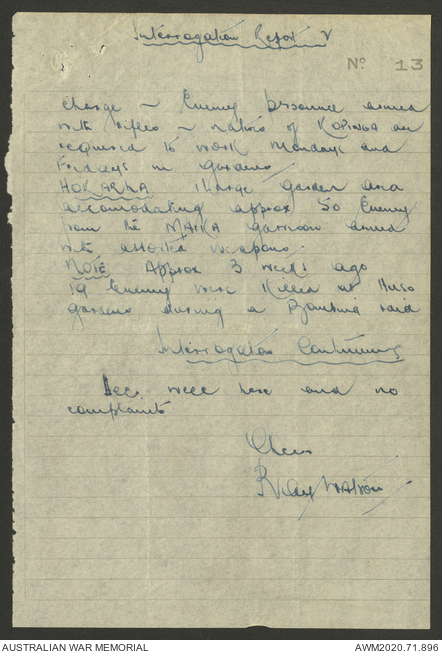 Interrogation Report V
No 13
charge - Enemy personnel armed
with rifles - natives of KOPINGA are
required to work Mondays and
Fridays in gardens
HOKARHA 1 large garden area
accomodating approx 50 Enemy
from the MAIKA garrison armed
with assorted weapons.
NOTE Approx 3 weeks ago
19 Enemy were killed at these
gardens during a Bombing raid
Interrogation Continuing
All well here and no
complaints
Cheers
Ray Watson
AUSTRALIAN WAR MEMORIAL
AWM2020.71.896